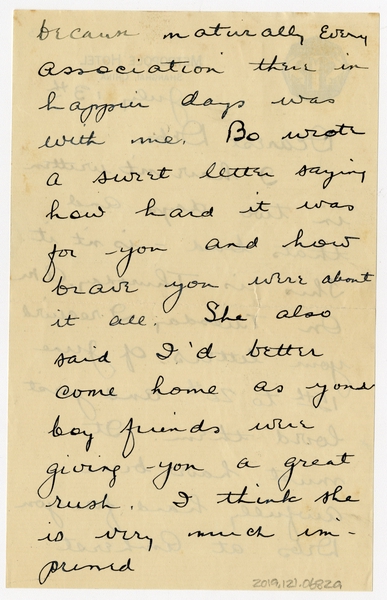 because naturally every
association there in
happier days was
with me. Bo wrote
a sweet letter saying
how hard it was
for you and how
brave you were about
it all. She also
said I'd better
come home as your
boy friends were
giving you a great
rush. I think she
is very much im-
pressed
2019.121.0682a